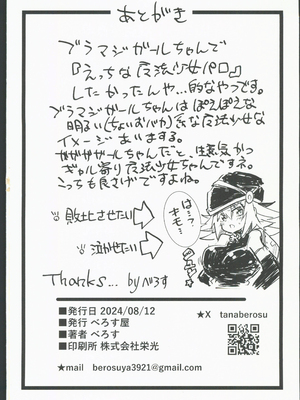 あとがき
ブラマジガールちゃんで
『えっちな魔法少女パロ』
したかったんや…的なやつです。
ブラマジガールちゃんはぽえぽえな
明るい(ちょいおバカ)系な魔法少女な
イメージあいます。
ガガガガールちゃんだと、生意気かつ
ギャル寄り魔法少女ちゃんですネ。
こっちも良さげですよね。
敗北させたい
泣かせたい
は…?
キモ…
Thanks... by べろす
■発行日 2024/08/12
■発行 べろす屋
■著者 べろす
■印刷所 株式会社栄光
★X tanaberosu
★mail berosuya3921@gmail.com